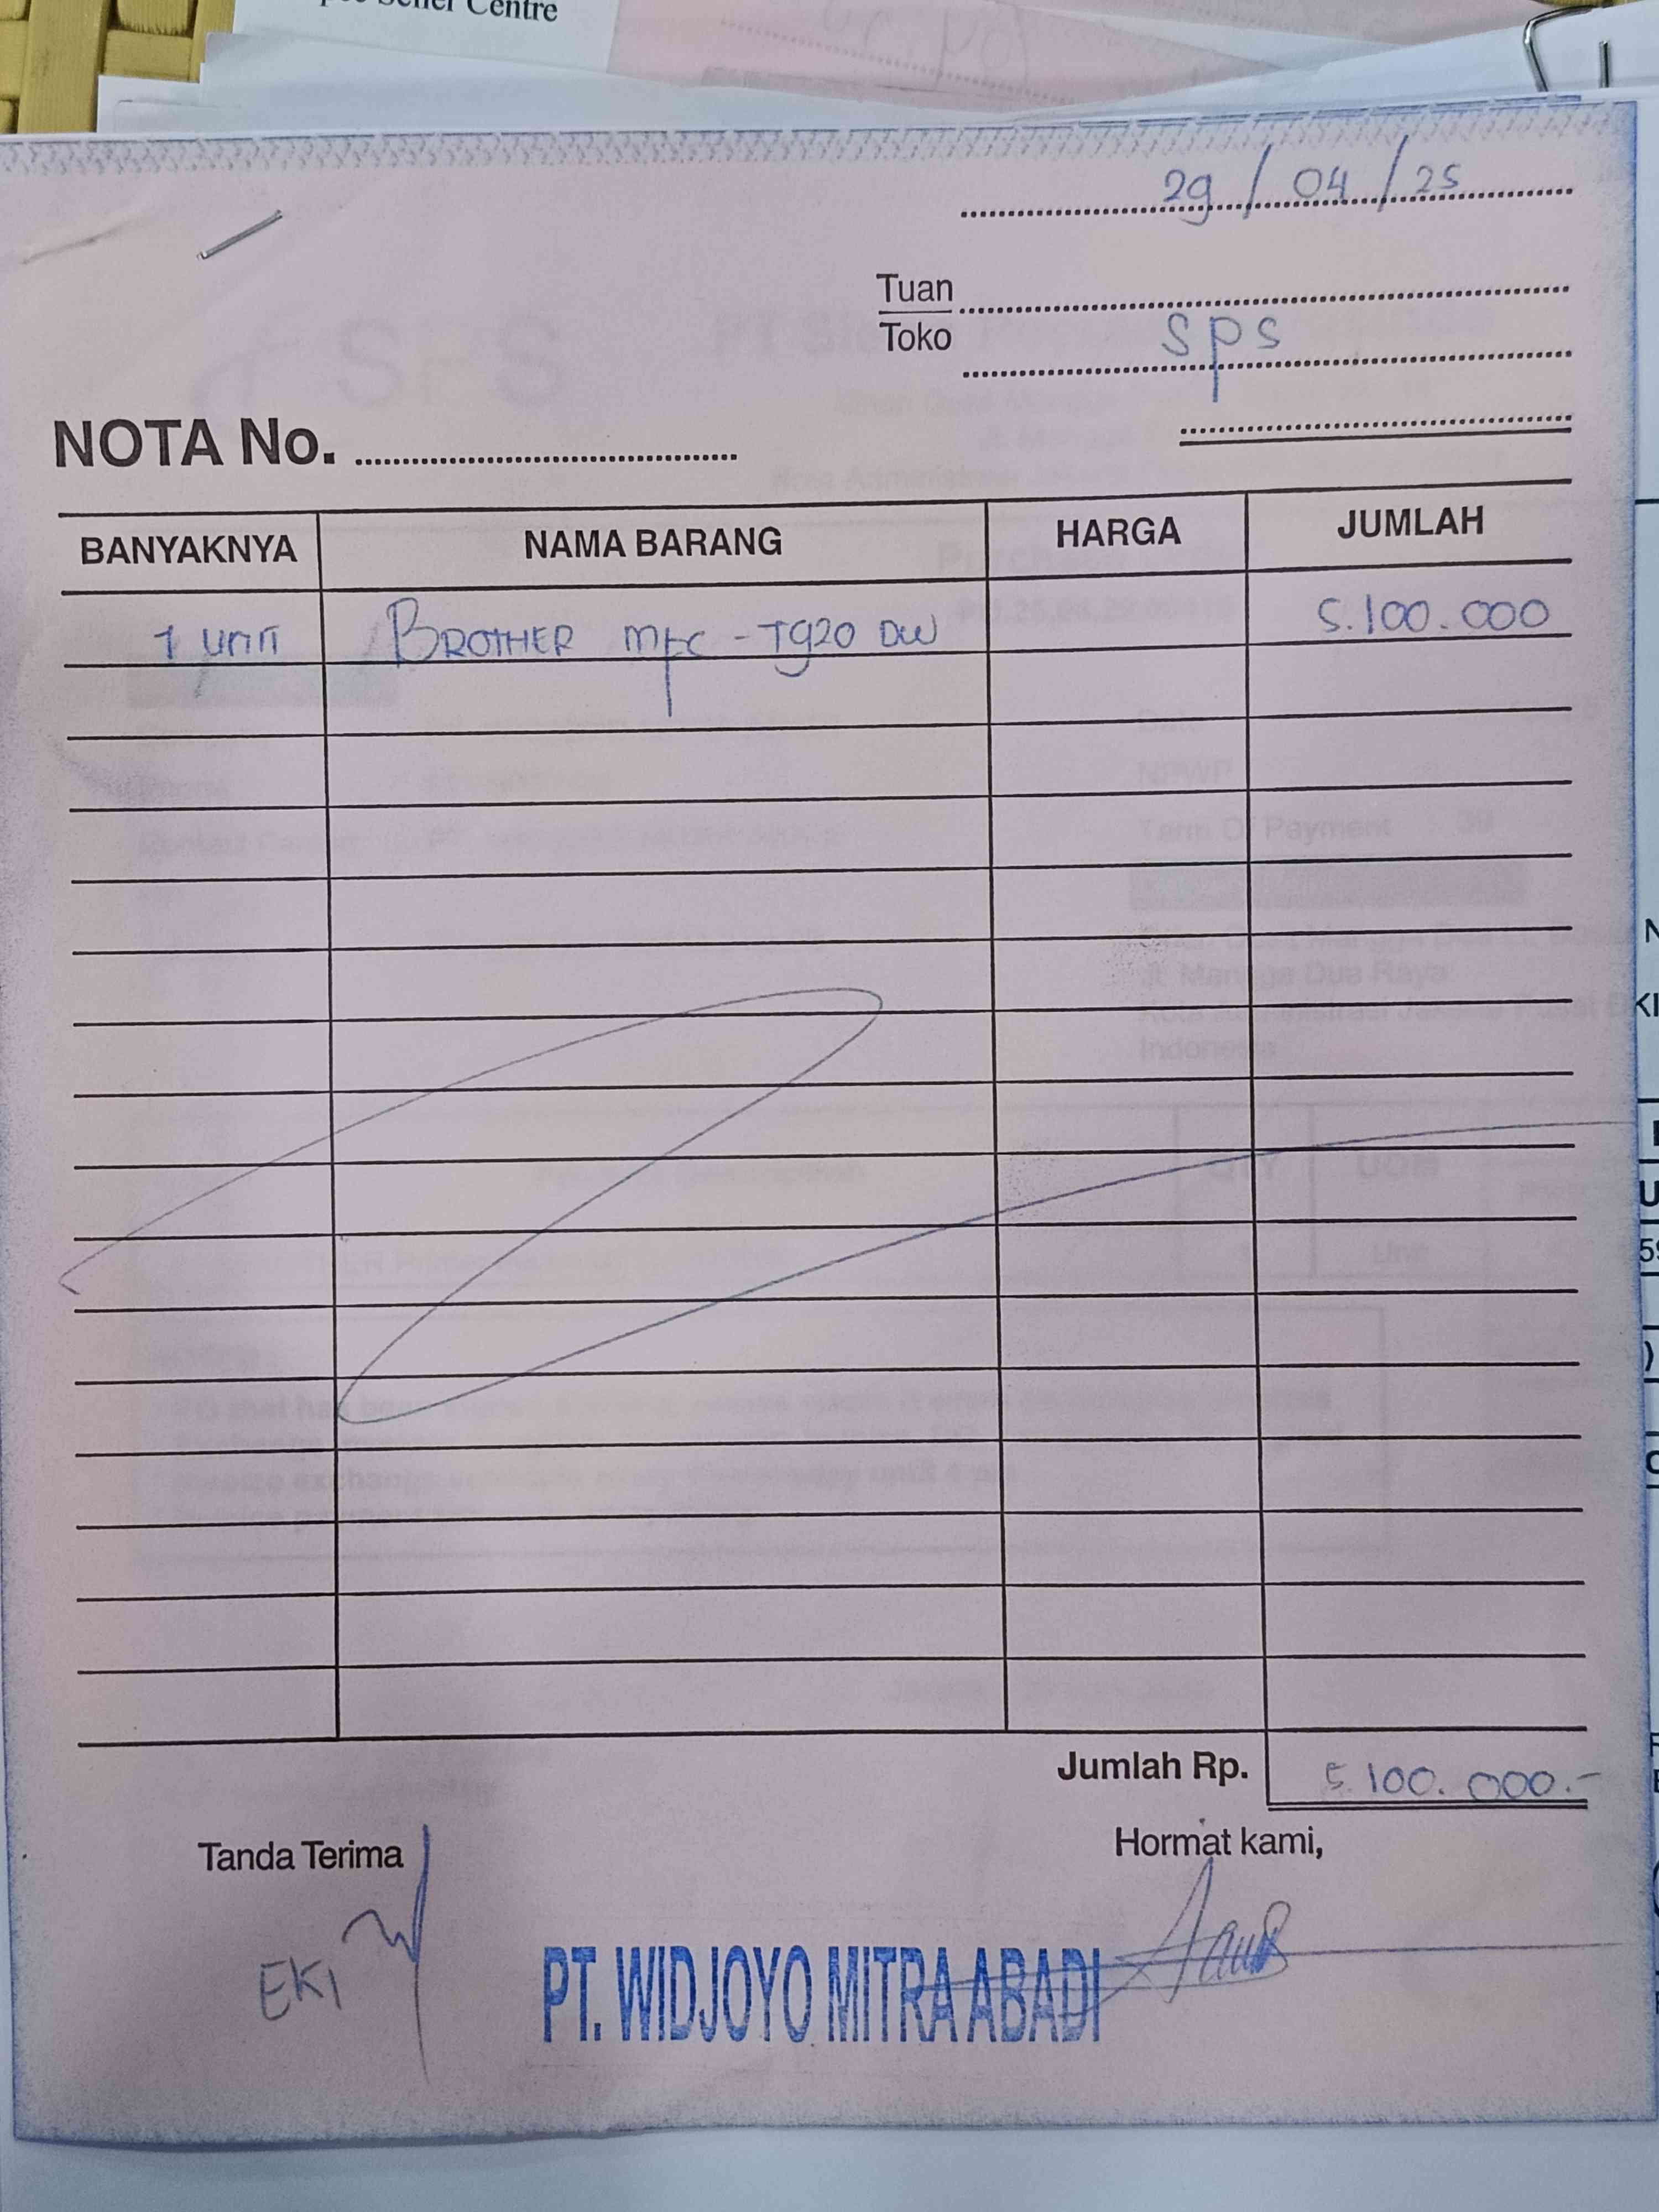 Seller Centre
29/04/25
Tuan
Toko
SPS
NOTA No.
BANYAKNYA NAMA BARANG HARGA JUMLAH
1 UNIT BROTHER MFC - T920 DW 5.100.000
Jumlah Rp. 5.100.000.-
Tanda Terima Hormat kami,
EKI
PT. WIDJOYO MITRA ABADI